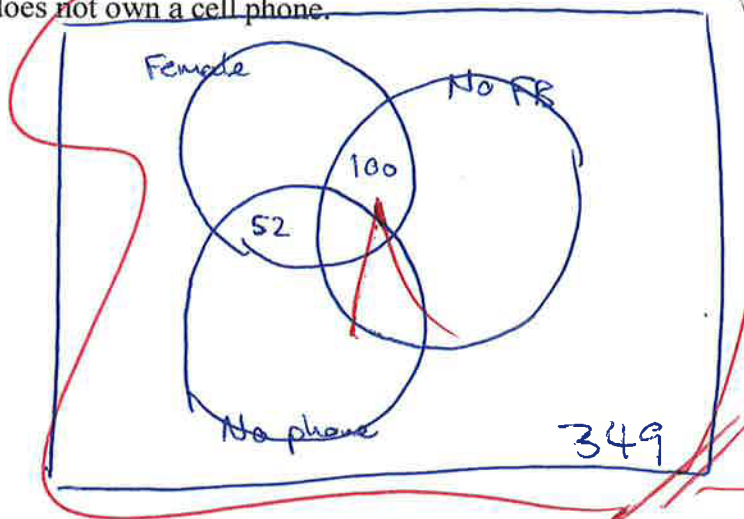 does not own a cell phone.
Female
No FB
100
52
No phone
349